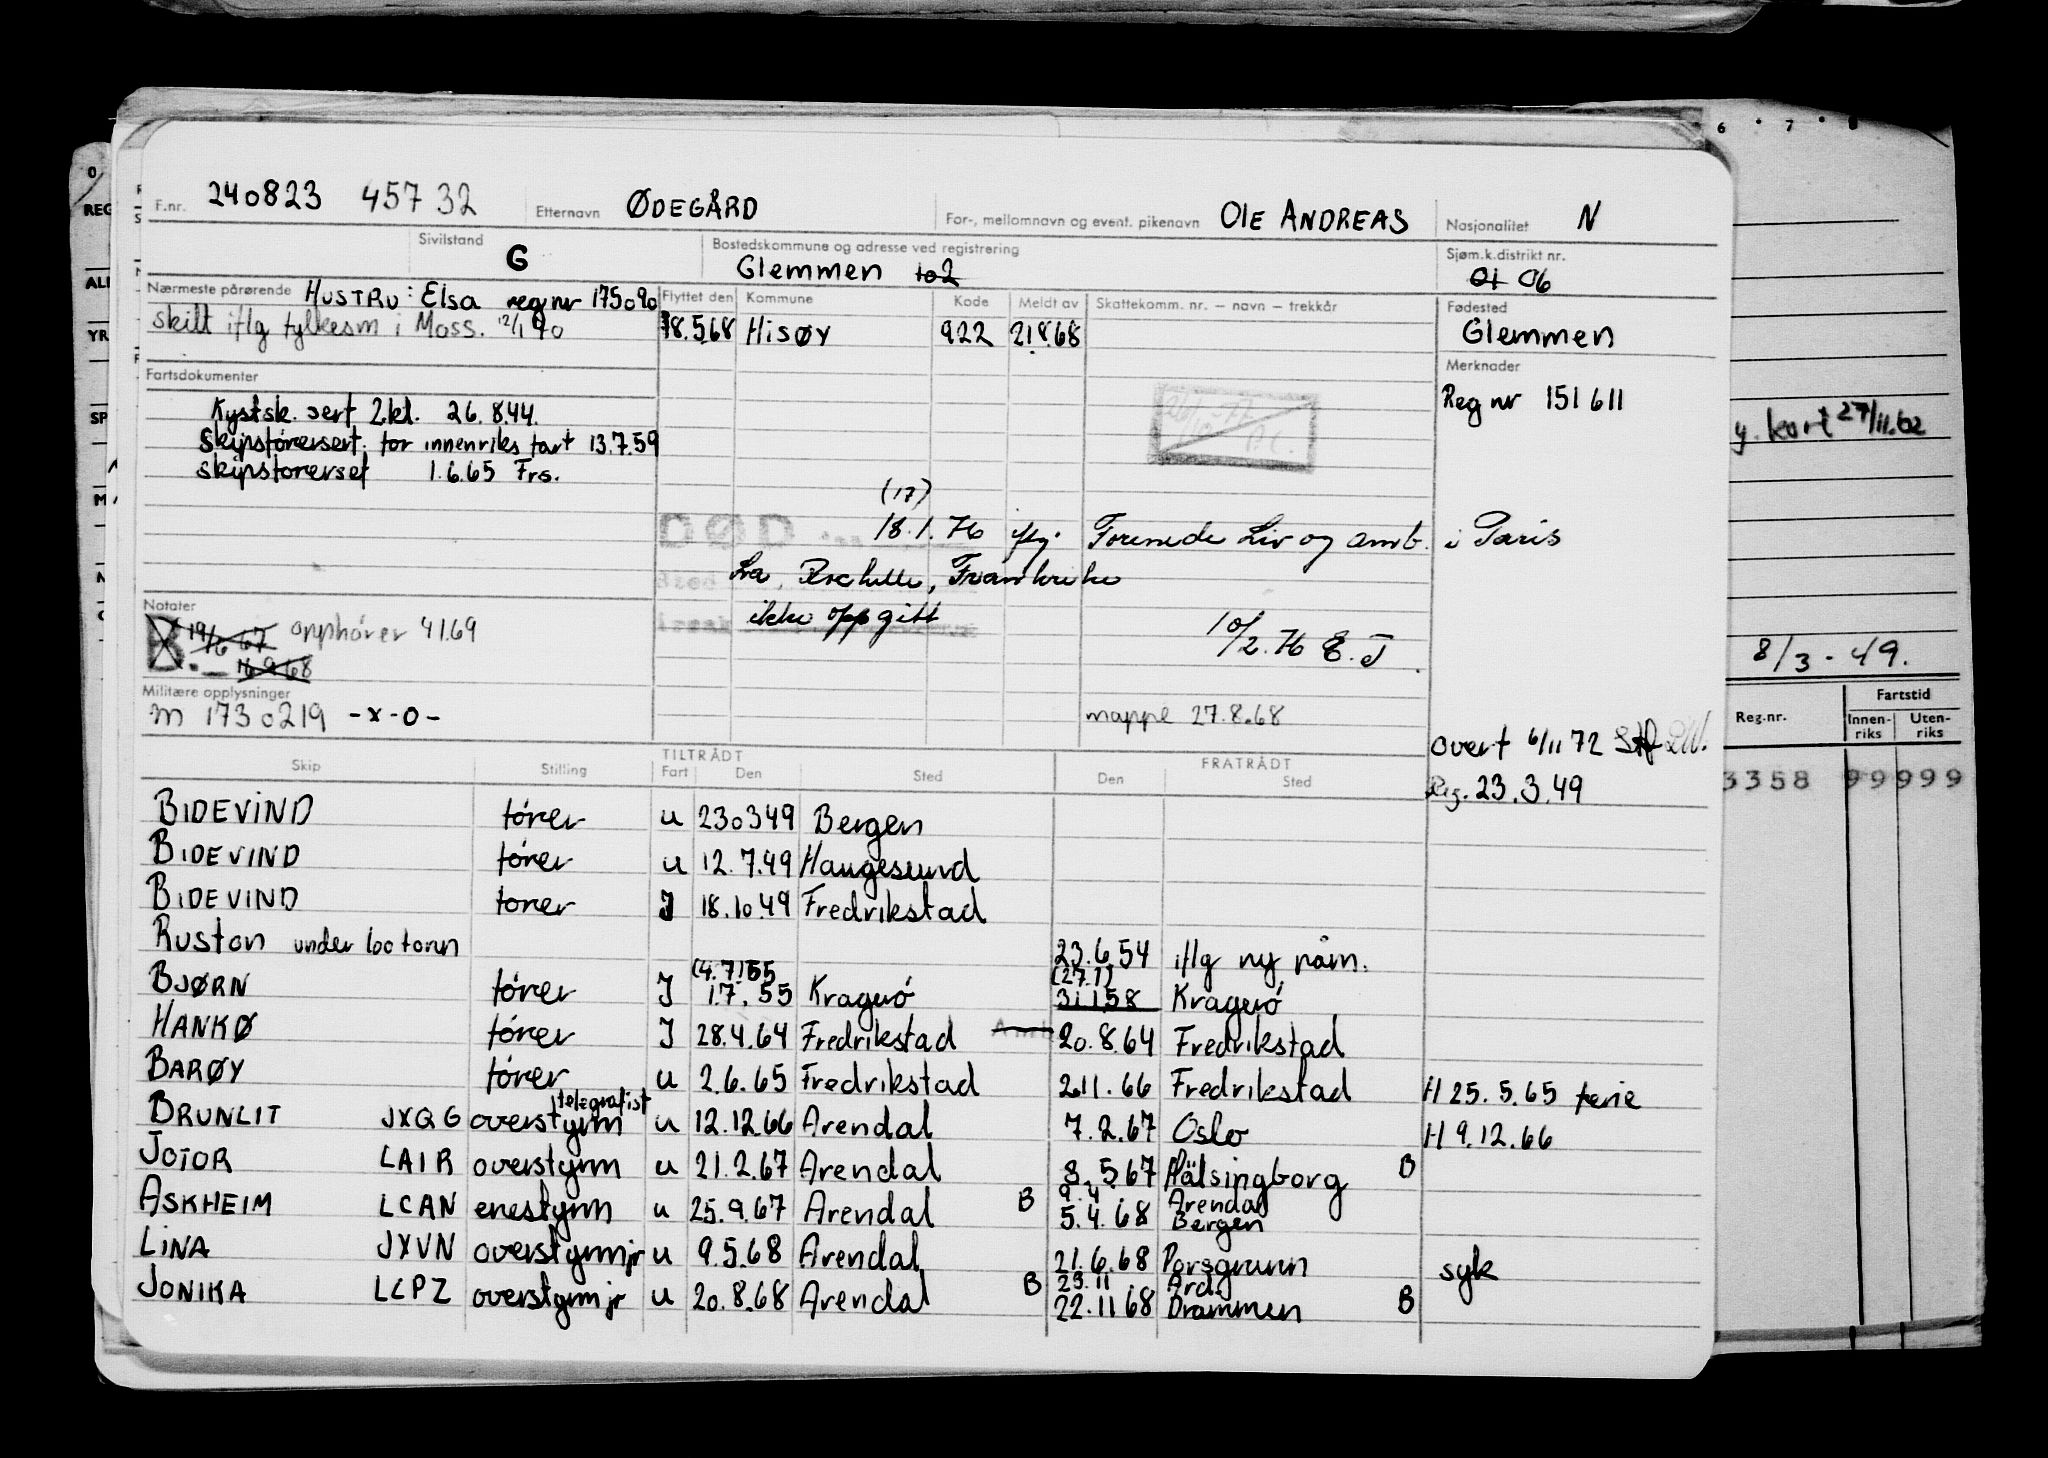 F.nr. 240823 45732 Etternavn ØDEGÅRD For-, mellomnavn og event. pikenavn OlE ANDREAS Nasjonalitet N
Sivilstand G Bostedskommune og adresse ved registrering Glemmen 102 Sjøm.k.distrikt nr. 01 06
Nærmeste pårørende HUSTRU: Elsa reg nr 175090 Flyttet den Kommune Kode Meldt av Skattekomm. nr. — navn — trekkår Fødested
skilt iflg fylkesm i Moss. 12/1 70 18.5.68 HISØY 922 21.8.68 Glemmen
Fartsdokumenter Merknader
Kystsk. sert 2kl. 26.8.44. Reg nr 151611
Skipsførersert. for innenriks fart 13.7.59
skipsførerset 1.6.65 Frs.
(17)
DØD 18.1.76 iflg. Forenede Liv og amb. i Paris
Sted La Rochelle, Frankrike
Årsak ikke oppgitt
10/2.76 E.J.
Notater
B 19/6 67 opphører 4169
B.— 16 9 68
Militære opplysninger
m 1730219 -x-0- mappe 27.8.68
overf 6/11 72
Reg. 23.3.49
TILTRÅDT FRATRÅDT
Skip Stilling Fart Den Sted Den Sted
BIDEVIND fører u 230349 Bergen
BIDEVIND fører u 12.7.49 Haugesund
BIDEVIND fører I 18.10.49 Fredrikstad
Ruston under 100 tonn 23.6.54 iflg ny påm.
BJØRN fører I (4.7)55 1.7.55 Kragerø (27.1) 31.1.58 Kragerø
HANKØ fører I 28.4.64 Fredrikstad 20.8.64 Fredrikstad
BARØY fører u 2.6.65 Fredrikstad 2.11.66 Fredrikstad H 25.5.65 ferie
BRUNLIT JXQG overstyrm telegrafist u 12.12.66 Arendal 7.2.67 Oslo H 9.12.66
JOTOR LAIR overstyrm u 21.2.67 Arendal 8.5.67 Hälsingborg B
ASKHEIM LCAN enestyrm u 25.9.67 Arendal B 9.4 Arendal 5.4.68 Bergen
LINA JXVN overstyrm jr u 9.5.68 Arendal 21.6.68 Porsgrunn syk
JONIKA LCPZ overstyrm jr u 20.8.68 Arendal B 23.11 Ard. 22.11 68 Drammen B
6 7 8
kort 27/11.62
8/3-49.
Fartstid
Reg.nr. Innen-riks Uten-riks
3358 99999